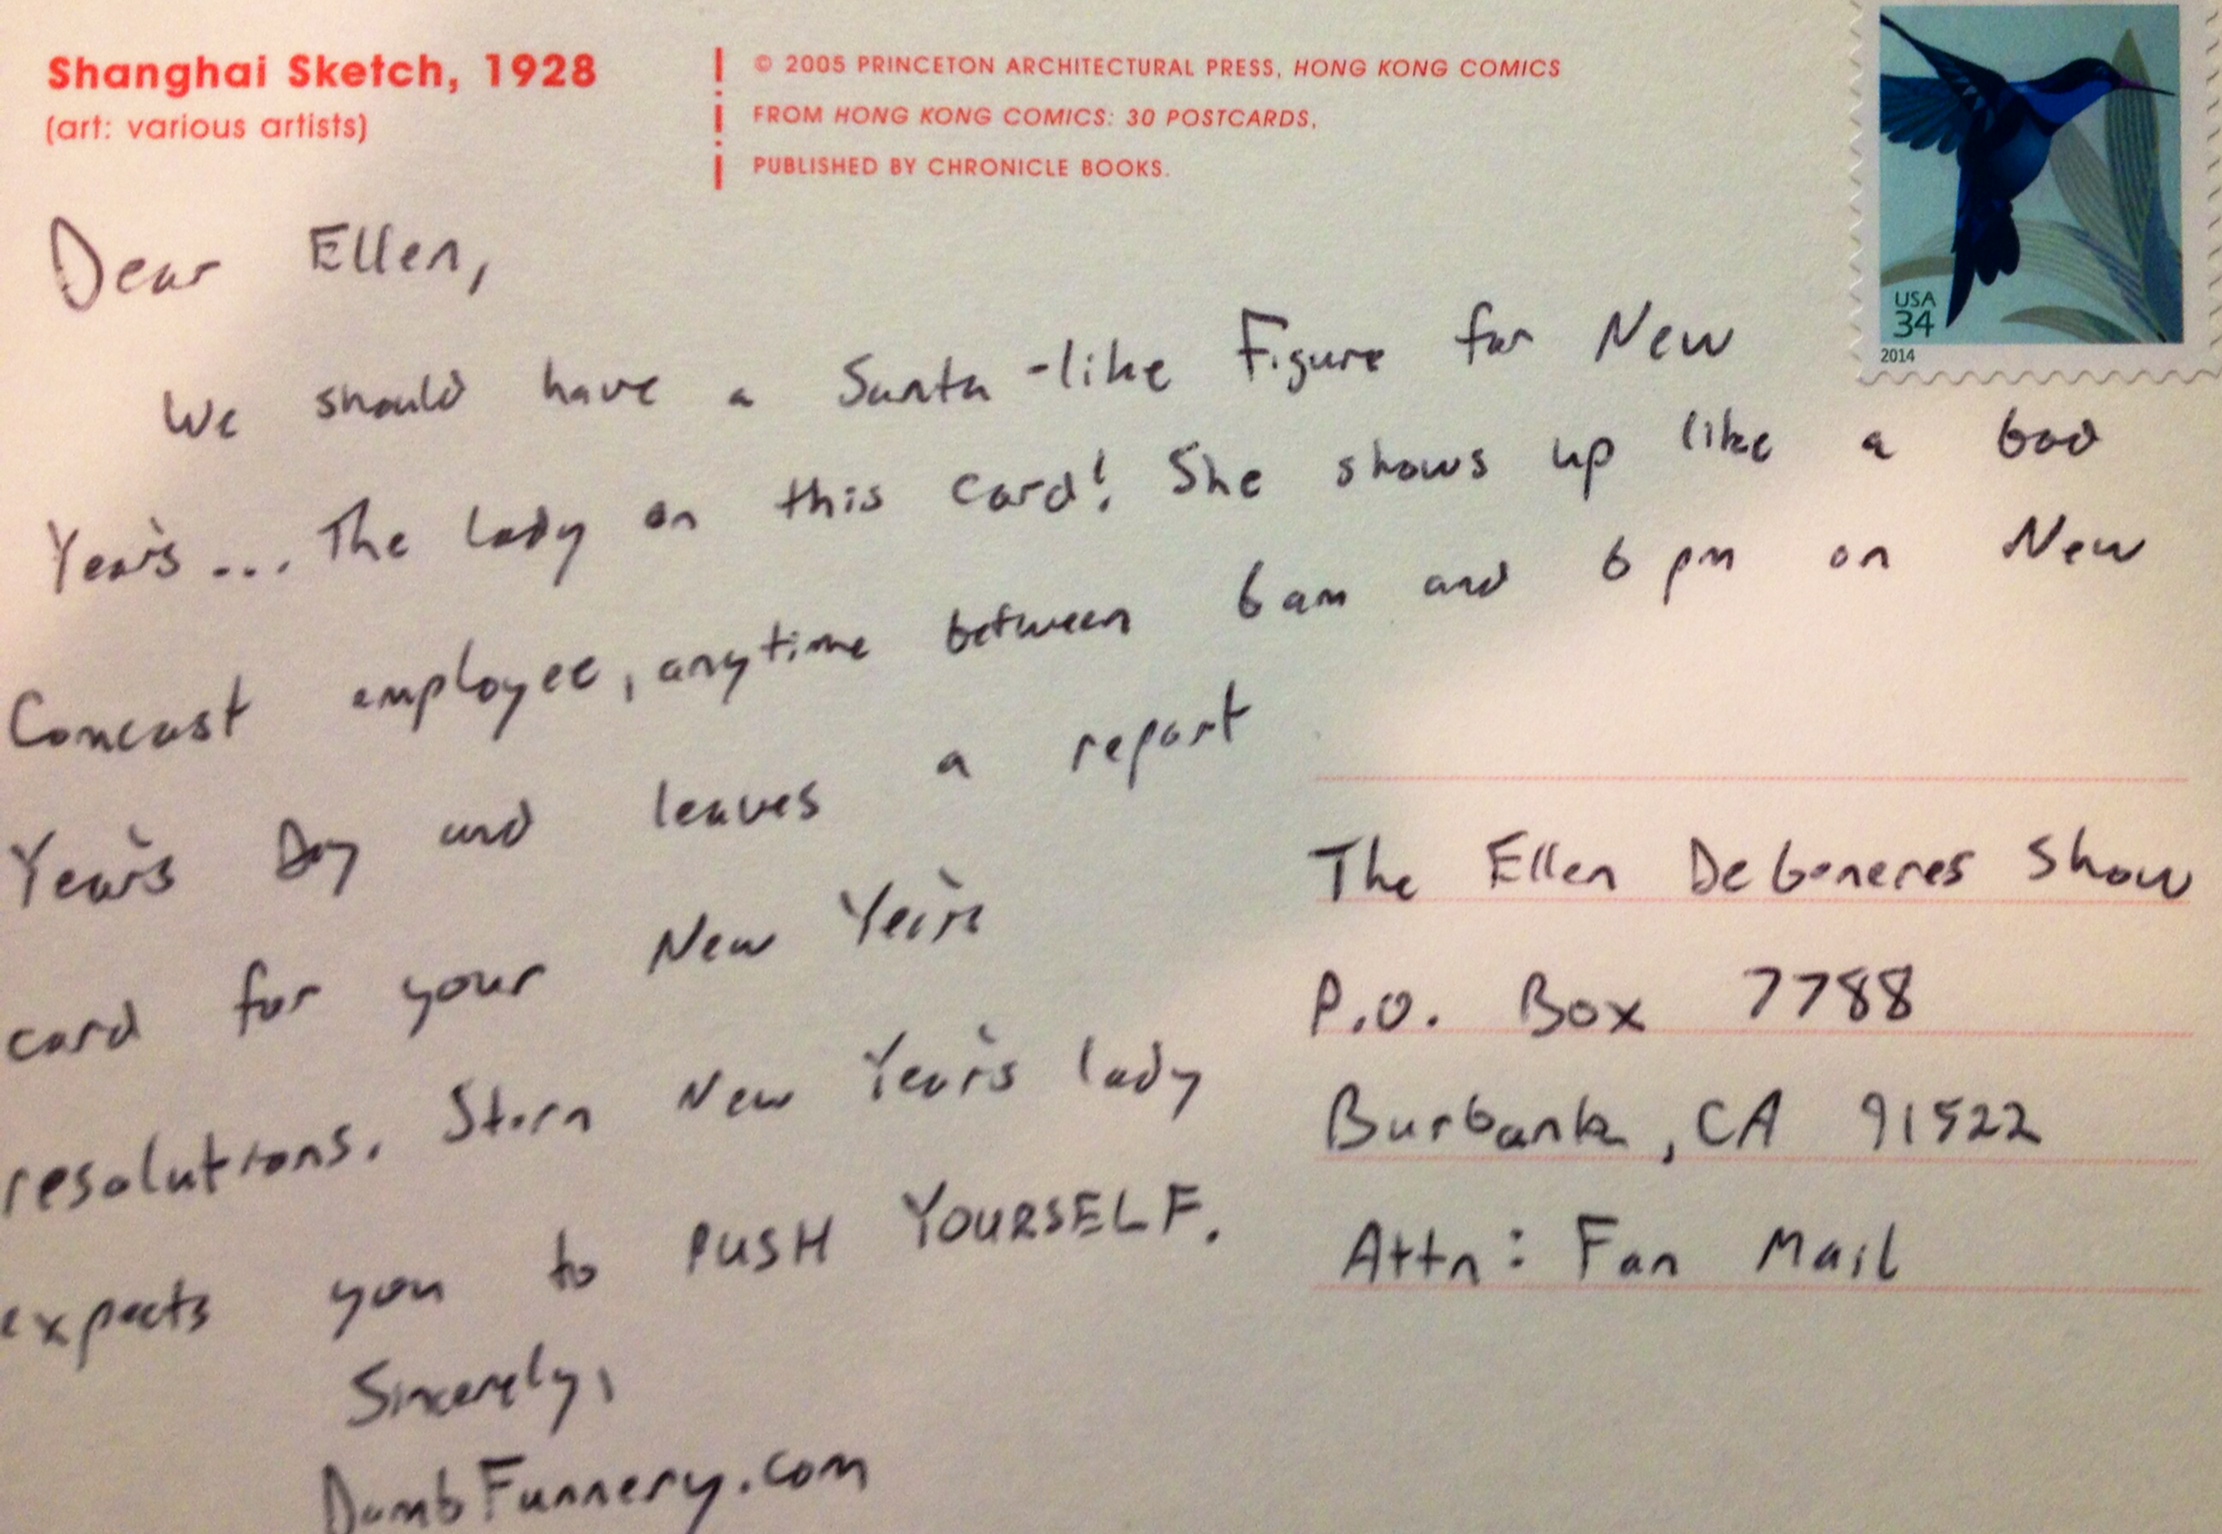 Shanghai Sketch, 1928
(art: various artists)
© 2005 PRINCETON ARCHITECTURAL PRESS, HONG KONG COMICS
FROM HONG KONG COMICS: 30 POSTCARDS,
PUBLISHED BY CHRONICLE BOOKS.
USA
34
2014
Dear Ellen,
We should have a Santa-like Figure for New
Year's... The lady on this card! She shows up like a God
Comcast employee, anytime between 6am and 6pm on New
Year's Day and leaves a report
card for your New Year's
resolutions. Stern New Year's lady
expects you to PUSH YOURSELF.
Sincerely,
DumbFunnery.com
The Ellen DeGeneres Show
P.O. Box 7788
Burbank, CA 91522
Attn: Fan Mail